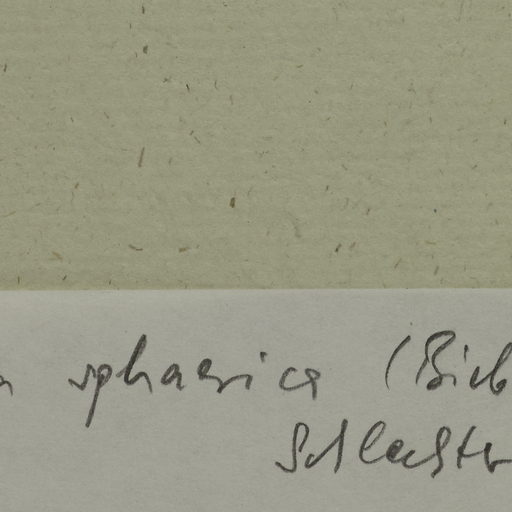 a sphaerica (Bieb
Schlechter